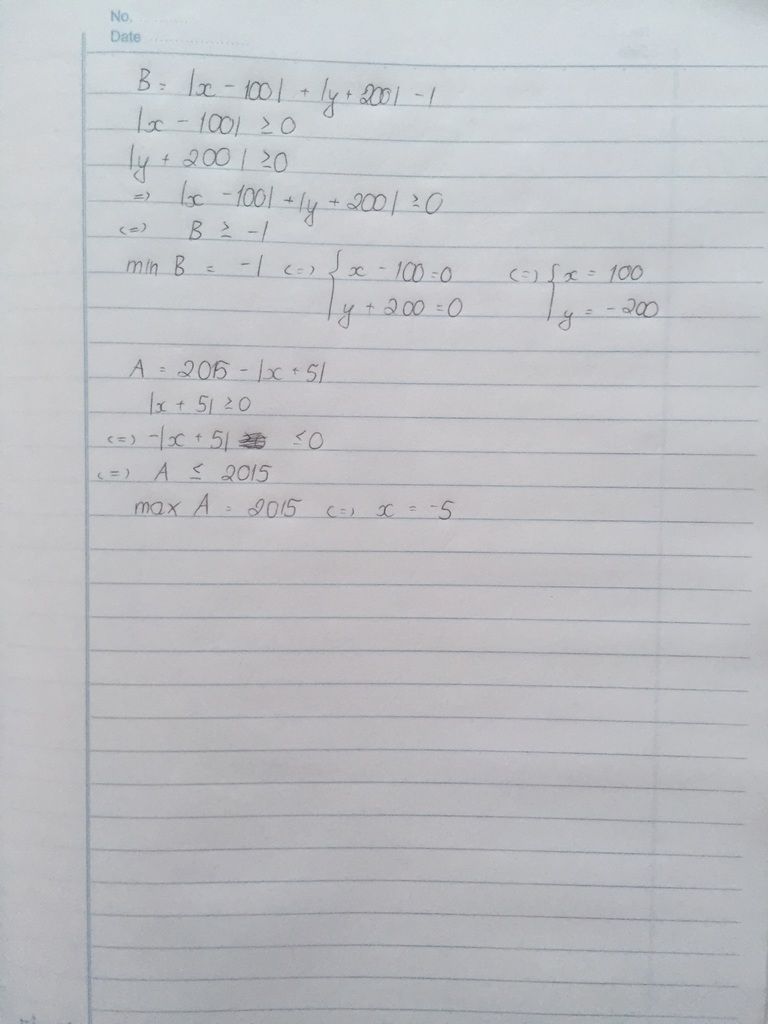 No.
Date
B = |x - 100| + |y + 200| - 1
|x - 100| ≥ 0
|y + 200| ≥ 0
=> |x - 100| + |y + 200| ≥ 0
<=> B ≥ -1
min B = -1 <=> { x - 100 = 0 <=> { x = 100
y + 200 = 0 y = -200
A = 2015 - |x + 5|
|x + 5| ≥ 0
<=> -|x + 5| ≤ 0
<=> A ≤ 2015
max A = 2015 <=> x = -5